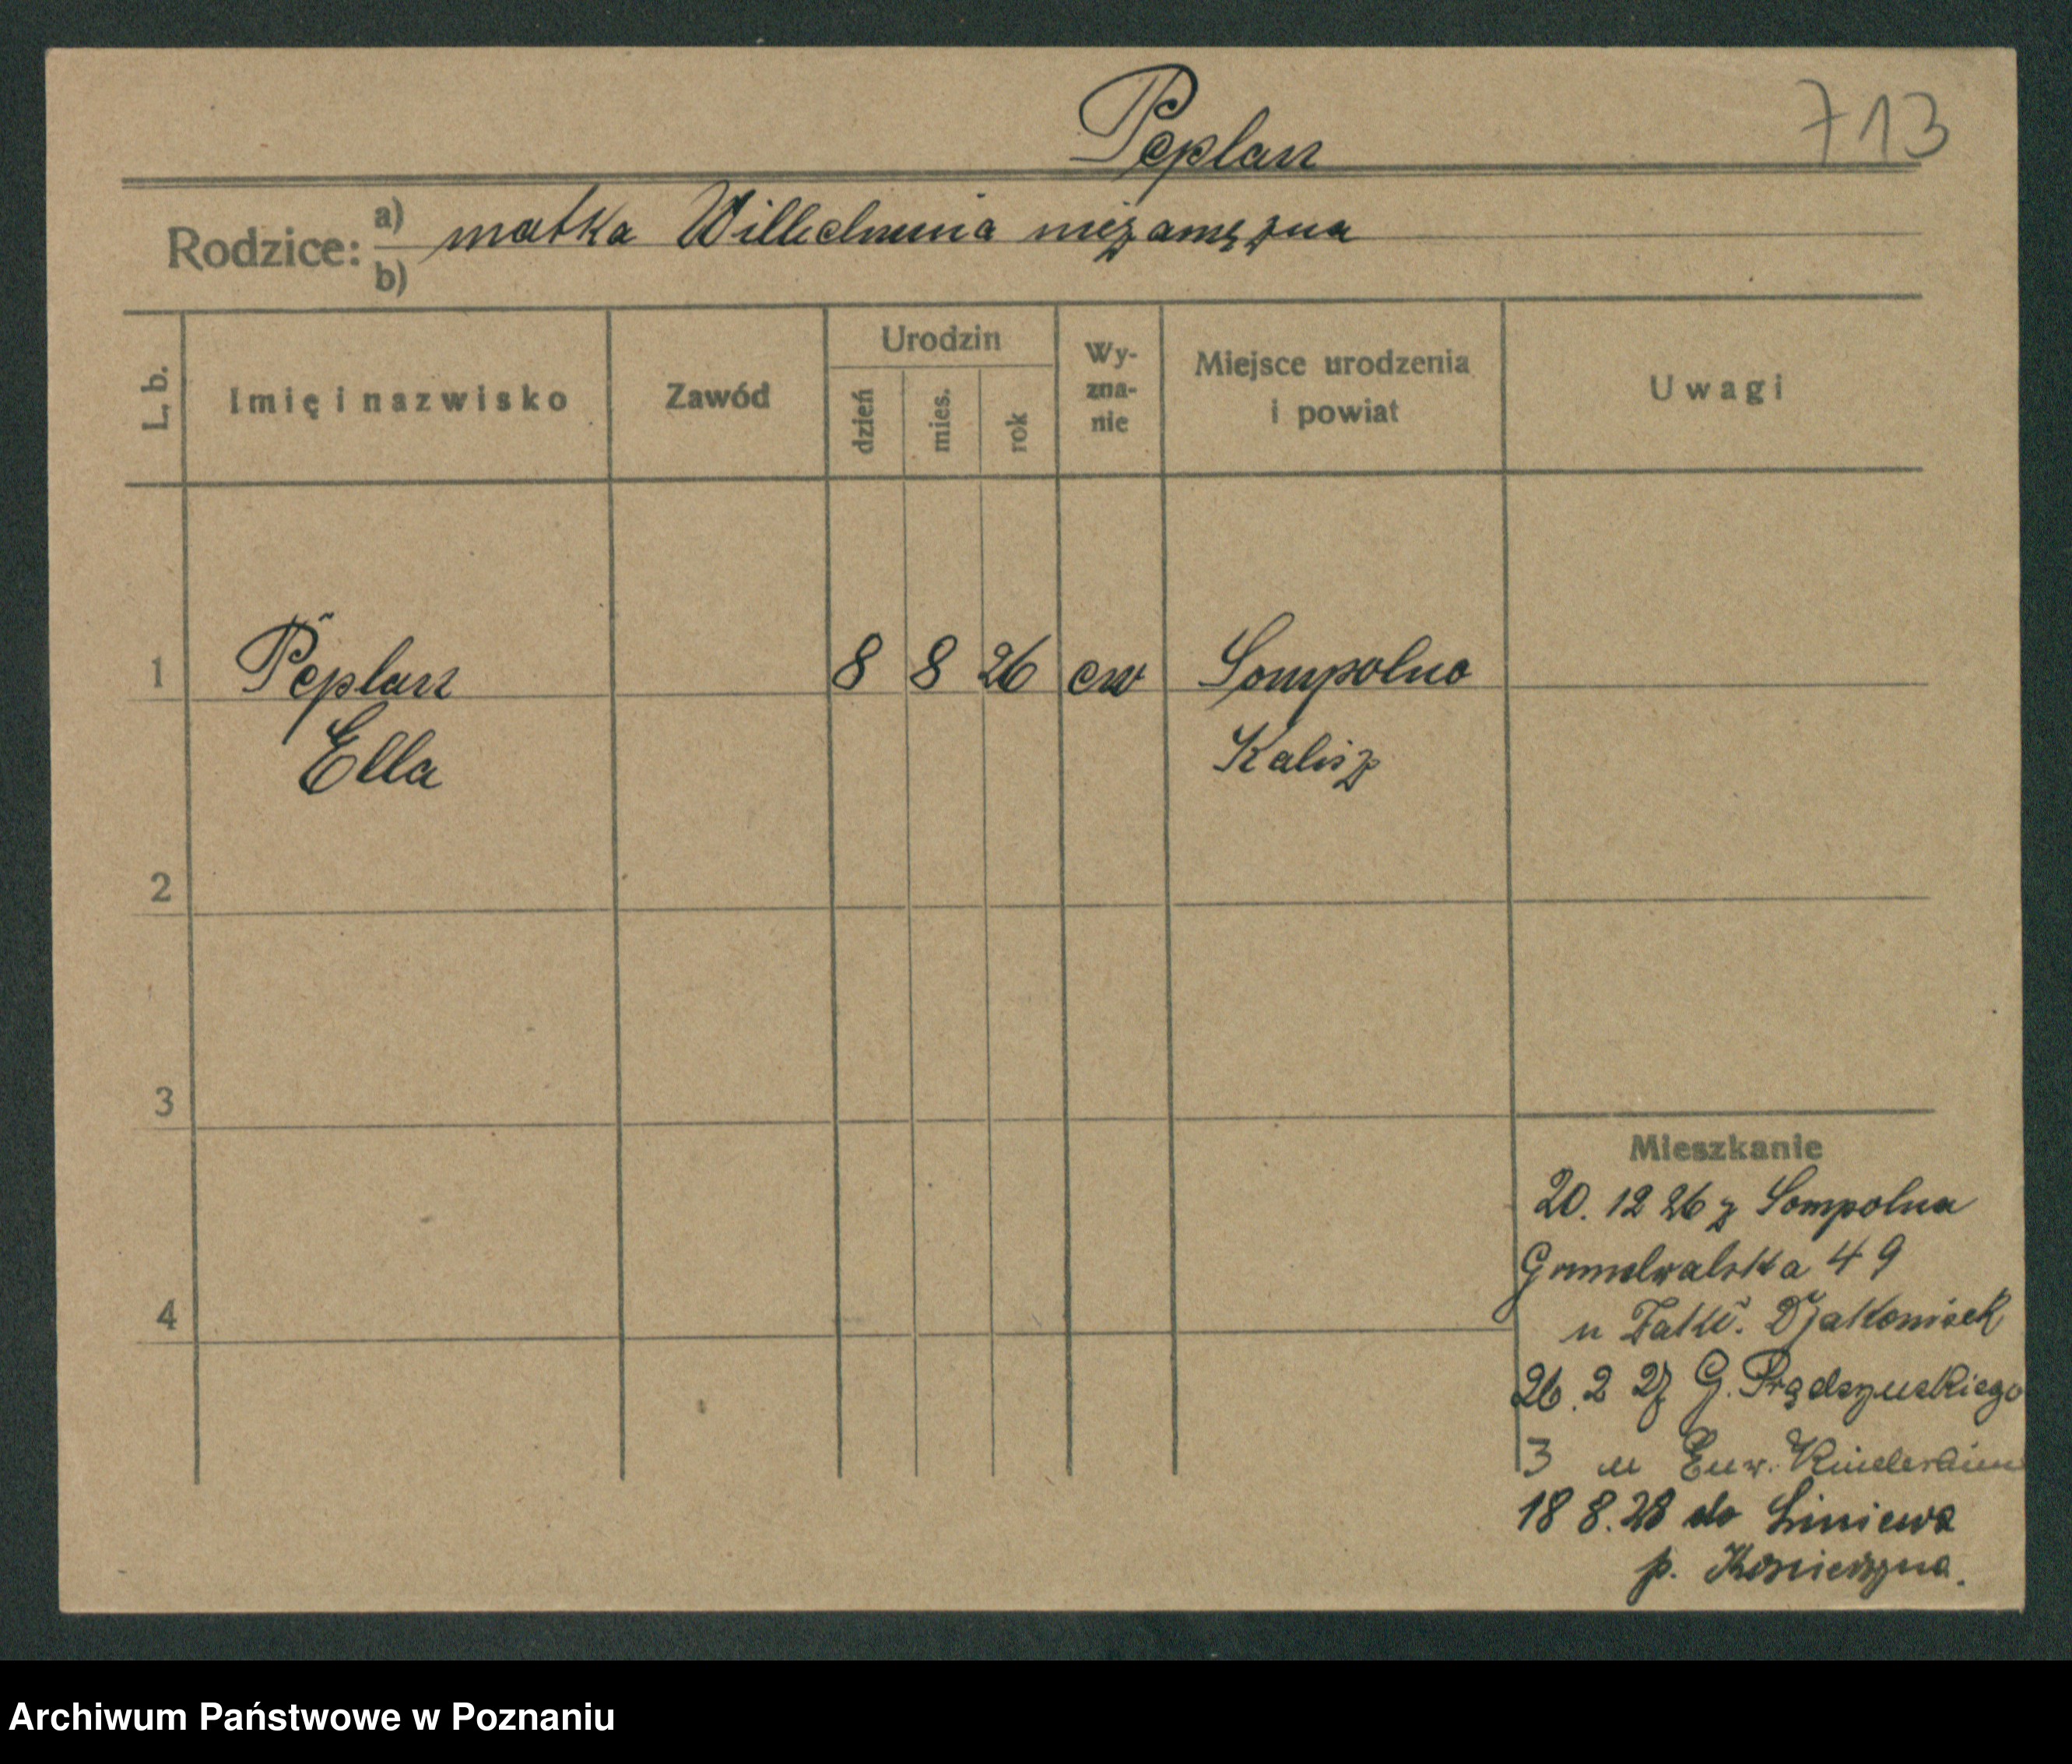 Peplau
713
Rodzice: a) matka Wilhelmina niezamężna
b)
L. b.
Imię i nazwisko
Zawód
Urodzin
dzień
mies.
rok
Wy-
zna-
nie
Miejsce urodzenia
i powiat
Uwagi
1 Peplau 8 8 26 ew Sompolno
Ella Kalisz
2
3
4
Mieszkanie
20. 12 26 z Sompolna
Grunwalska 49
u
26. 2 27 G. Prądzyńskiego
3 u
18 8. 28 do Liniewa
p. Kościerzyna.
Archiwum Państwowe w Poznaniu